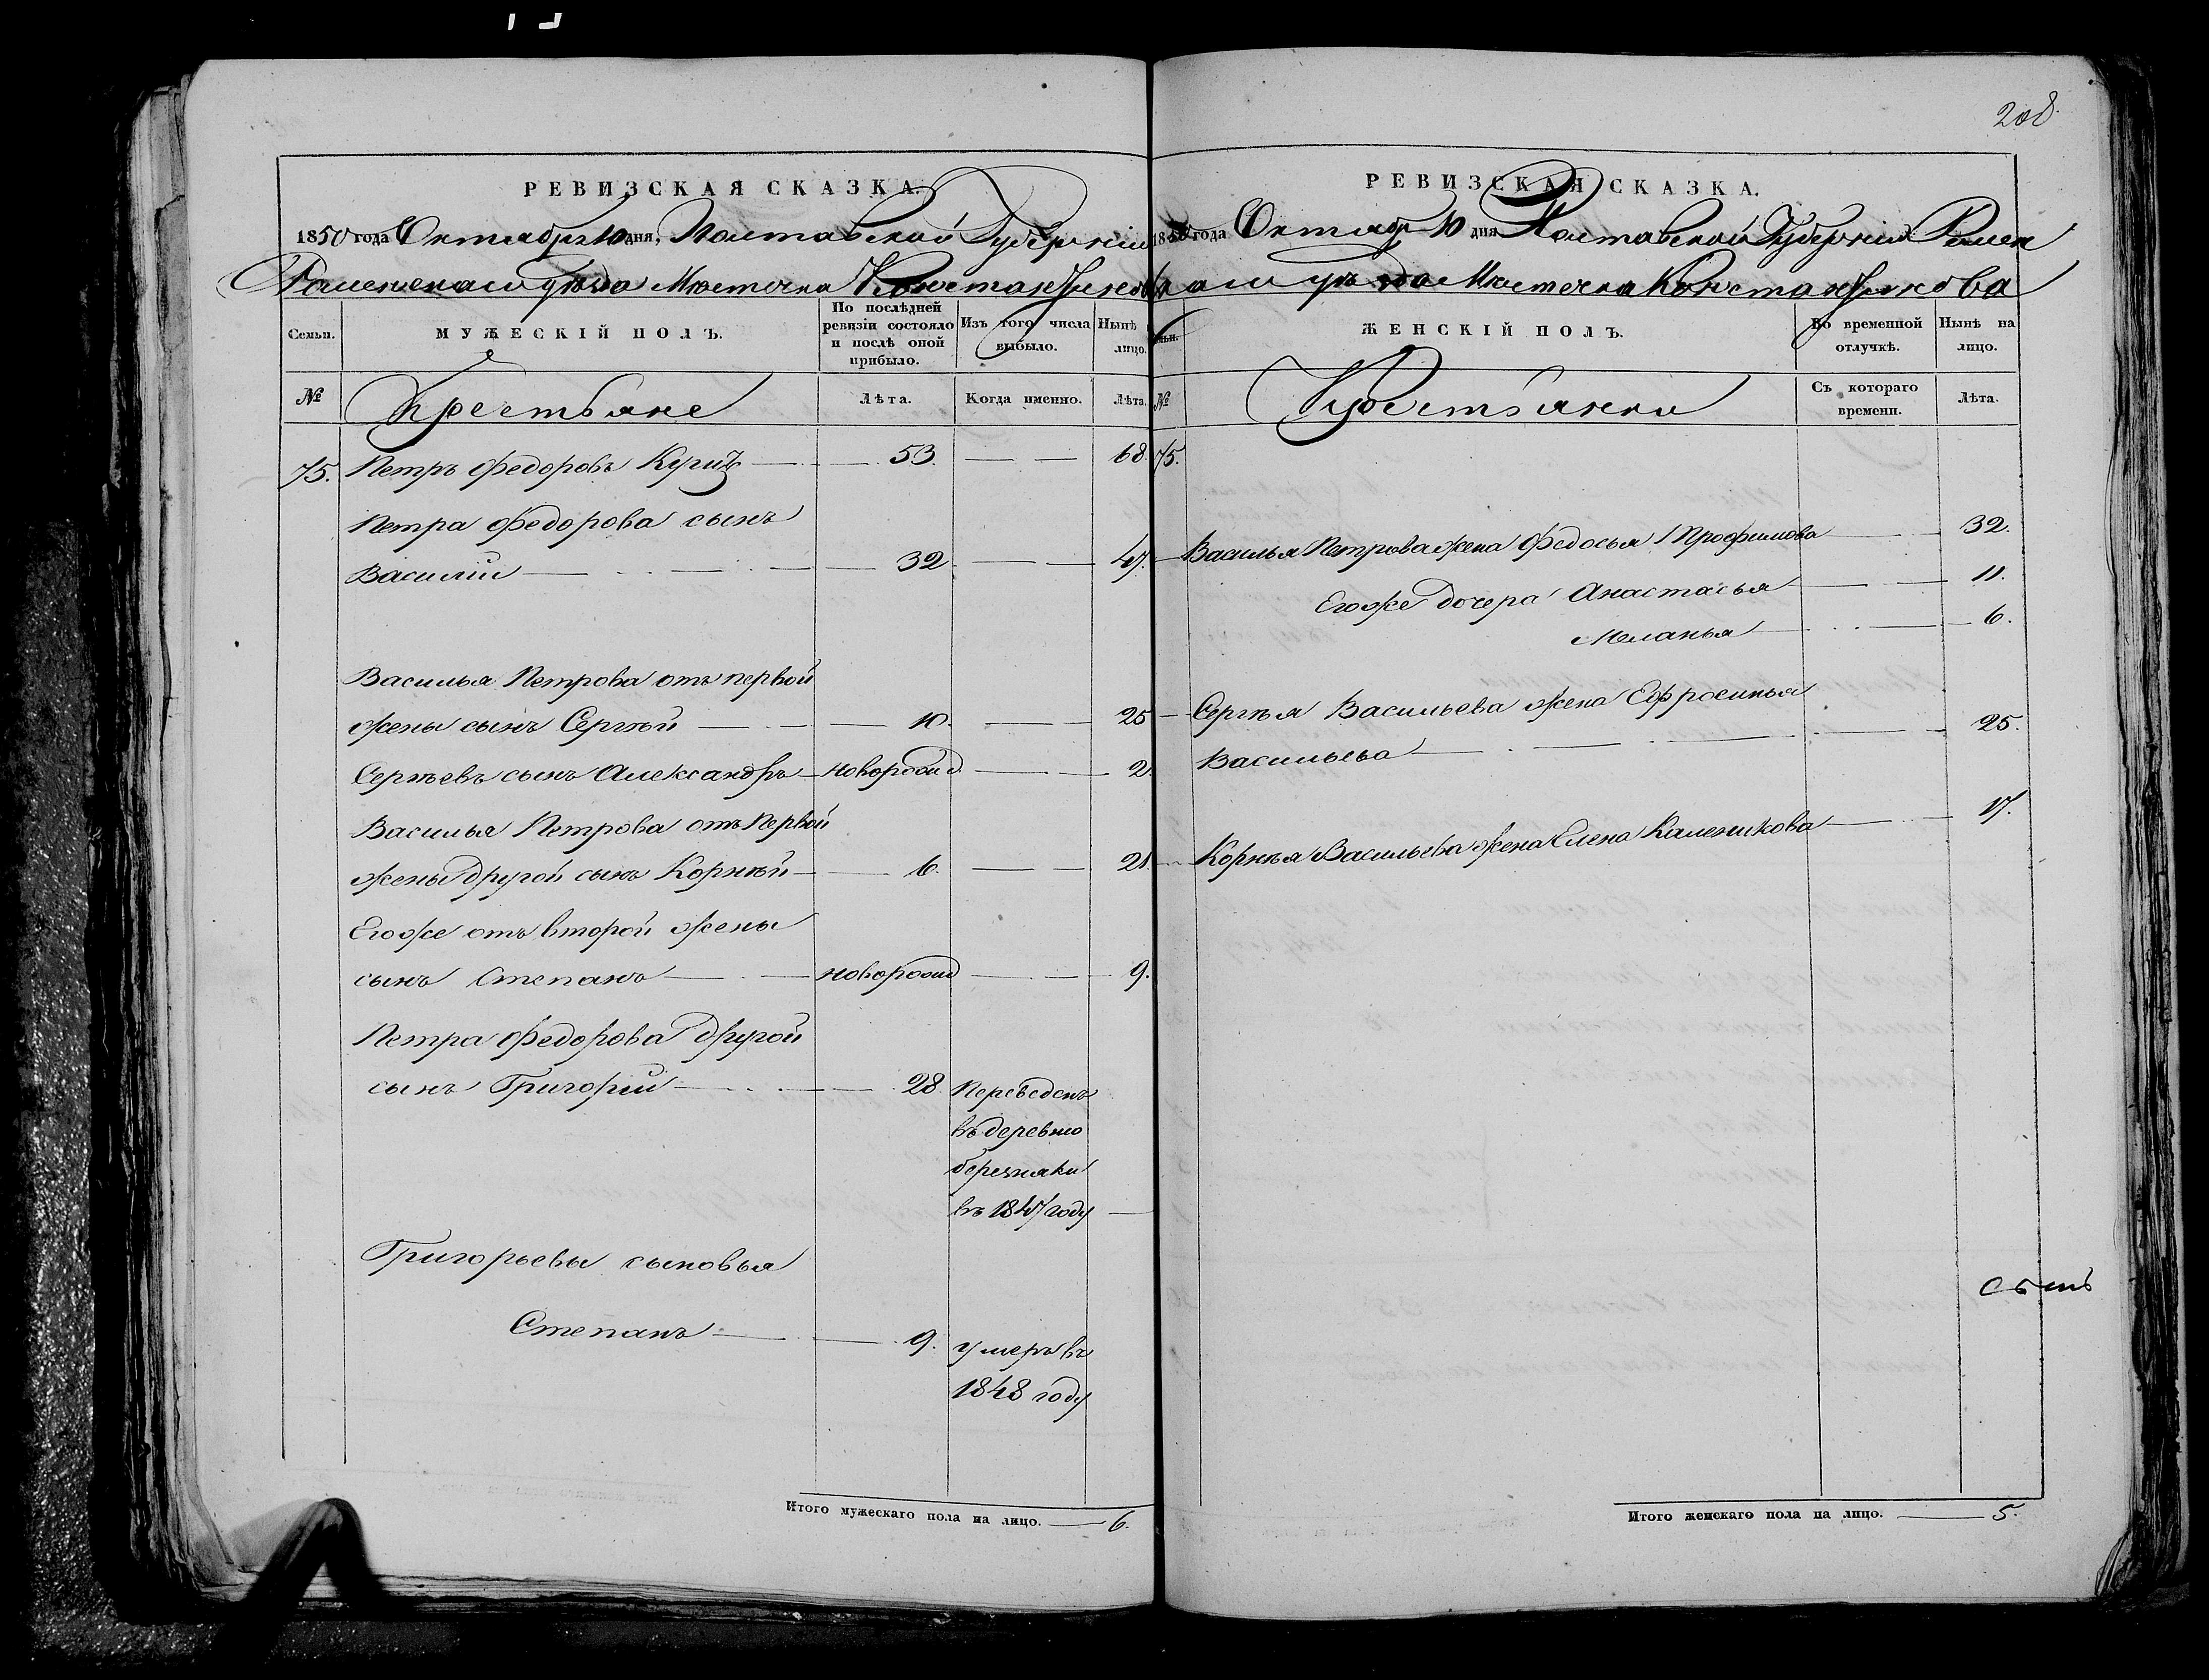 208.
РЕВИЗСКАЯ СКАЗКА.
1850 года Октября 10 дня, Полтавской Губерніи
Роменскаго уѣзда Мѣстечка Константинова
Семьи.
МУЖЕСКІЙ ПОЛЪ.
По послѣдней ревизіи состояло и послѣ оной прибыло.
Изъ того числа выбыло.
Нынѣ лицо.
№
Крестьяне
Лѣта.
Когда именно.
Лѣта.
75. Петръ Федоровъ 53. 68
Петра Федорова сынъ
Василій 32 47.
Василья Петрова отъ первой
жены сынъ Сергѣй 10. 25
Сергѣевъ сынъ Александръ новорожд 2.
Василья Петрова отъ первой
жены другой сынъ Корнѣй 6. 21.
Егоже отъ второй жены
сынъ Степанъ новорожд 9.
Петра Федорова другой
сынъ Григорій 28. Переведенъ
въ деревню
березняки
въ 1847 году
Григорьевы сыновья
Степанъ 9. умеръ въ
1848 году
Итого мужескаго пола на лицо. 6.
РЕВИЗСКАЯ СКАЗКА.
1850 года Октября 10 дня Полтавской Губерніи Ромен
скаго уѣзда Мѣстечка Константинова
ЖЕНСКІЙ ПОЛЪ.
Во временной отлучкѣ.
Нынѣ на лицо.
№
Съ котораго времени.
Лѣта.
75.
Василья Петрова жена Федосья Трофимова 32.
Егоже дочера Анастасья 11.
Меланья 6.
Сергѣя Васильева жена Ефросинья
Васильева 25.
Корнѣя Васильева жена Елена Каленикова 17.
Итого женскаго пола на лицо. 5.